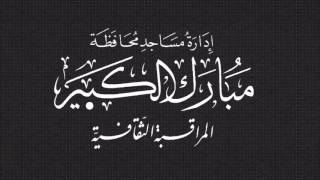 إِدَارَةُ مَسَاجِدِ مُحَافَظَة
مُبَارَك الْكَبِيْر
المراقبة الثقافية